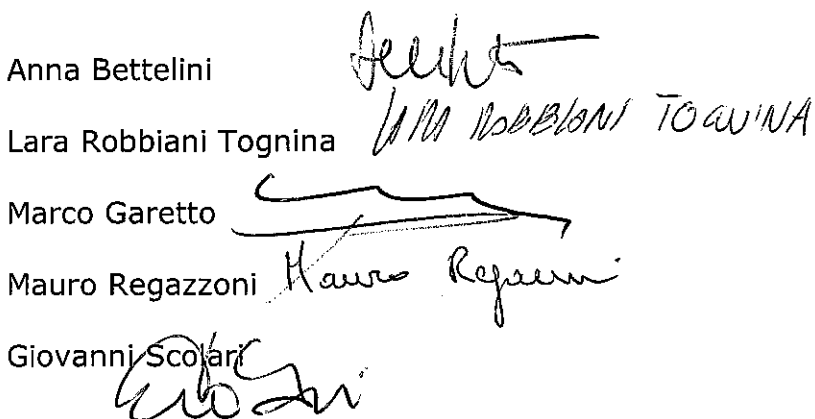 Anna Bettelini
Lara Robbiani Tognina ROBBIANI TOGNINA
Marco Garetto
Mauro Regazzoni Mauro
Giovanni Scolari